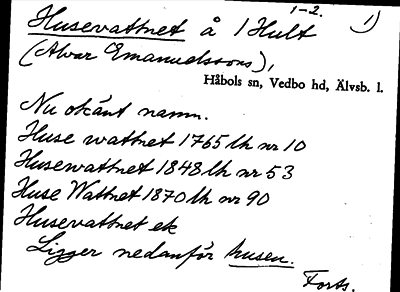 1-2. 1)
Husevattnet å 1 Hult
(Alvar Emanuelssons),
Håbols sn, Vedbo hd, Älvsb. l.
Nu okänt namn.
Huse wattnet 1765 lh nr 10
Husewattnet 1848 lh nr 53
Huse Wattnet 1870 lh nr 90
Husevattnet ek
Ligger nedanför husen.
Forts.